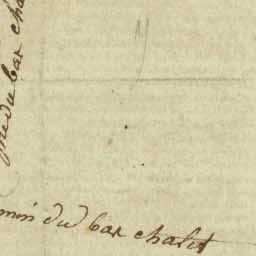 du bas cha
min du bas chalit